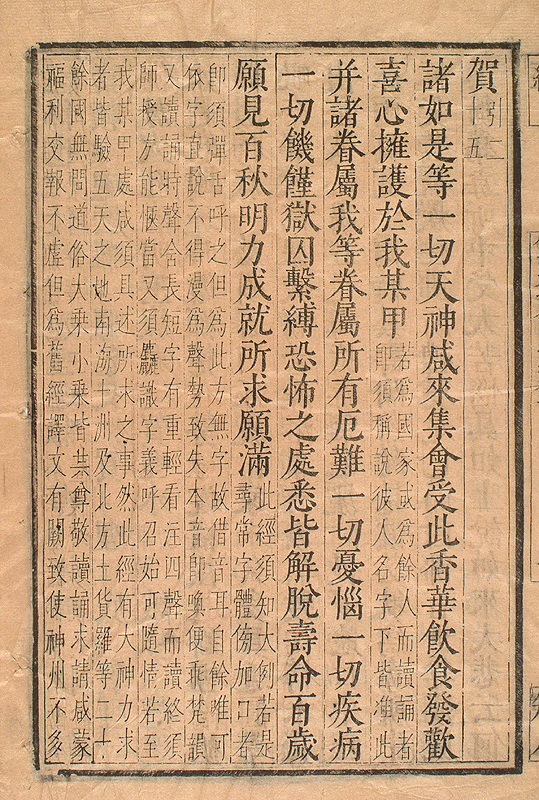 賀引二
十五
諸如是等一切天神咸來集會受此香華飲食發歡
喜心擁護於我某甲若爲國家或爲餘人而讀誦者
即須稱說彼人名字下皆准此
并諸眷屬我等眷屬所有厄難一切憂惱一切疾病
一切饑饉獄囚繫縛恐怖之處悉皆解脫壽命百歲
願見百秋明力成就所求願滿此經須知大例若是
尋常字體傍加口者
即須彈舌呼之但爲此方無字故借音耳自餘唯可
依字直說不得漫爲聲勢致失本音即喚便乖梵韻
又讀誦時聲含長短字有重輕看注四聲而讀終須
師授方能愜當又須麤識字義呼召始可隨情若至
我某甲處咸須具述所求之事然此經有大神力求
者皆驗五天之地南海十洲及北方土貨羅等二十
餘國無問道俗大乘小乘皆共尊敬讀誦求請咸蒙
福利交報不虛但爲舊經譯文有闕致使神州不多